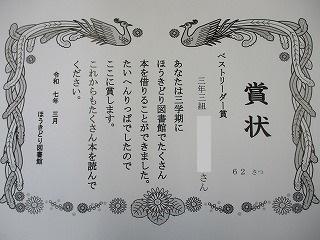 賞状
ベストリーダー賞
三年三組
さん
62さつ
あなたは三学期に
ほうきどり図書館でたくさん
本を借りることができました。
たいへんりっぱでしたので
ここに賞します。
これからもたくさん本を読んで
ください。
令和 七年 三月
ほうきどり図書館